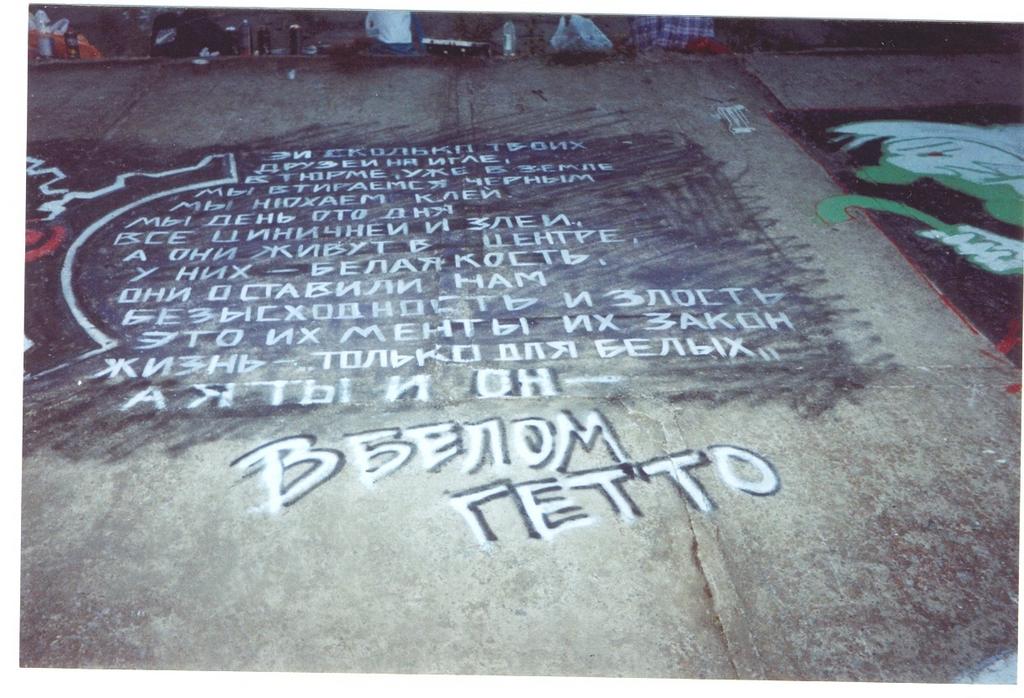 ЭЙ СКОЛЬКО ТВОИХ
ДРУЗЕЙ НА ИГЛЕ,
В ТЮРМЕ, УЖЕ В ЗЕМЛЕ
МЫ ВТИРАЕМСЯ ЧЕРНЫМ
МЫ НЮХАЕМ КЛЕЙ.
МЫ ДЕНЬ ОТО ДНЯ
ВСЕ ЦИНИЧНЕЙ И ЗЛЕЙ,
А ОНИ ЖИВУТ В ЦЕНТРЕ,
У НИХ – БЕЛАЯ КОСТЬ,
ОНИ ОСТАВИЛИ НАМ
БЕЗЫСХОДНОСТЬ И ЗЛОСТЬ
ЭТО ИХ МЕНТЫ ИХ ЗАКОН
ЖИЗНЬ – ТОЛЬКО ДЛЯ БЕЛЫХ,,
А Я ТЫ И ОН –
В БЕЛОМ
ГЕТТО